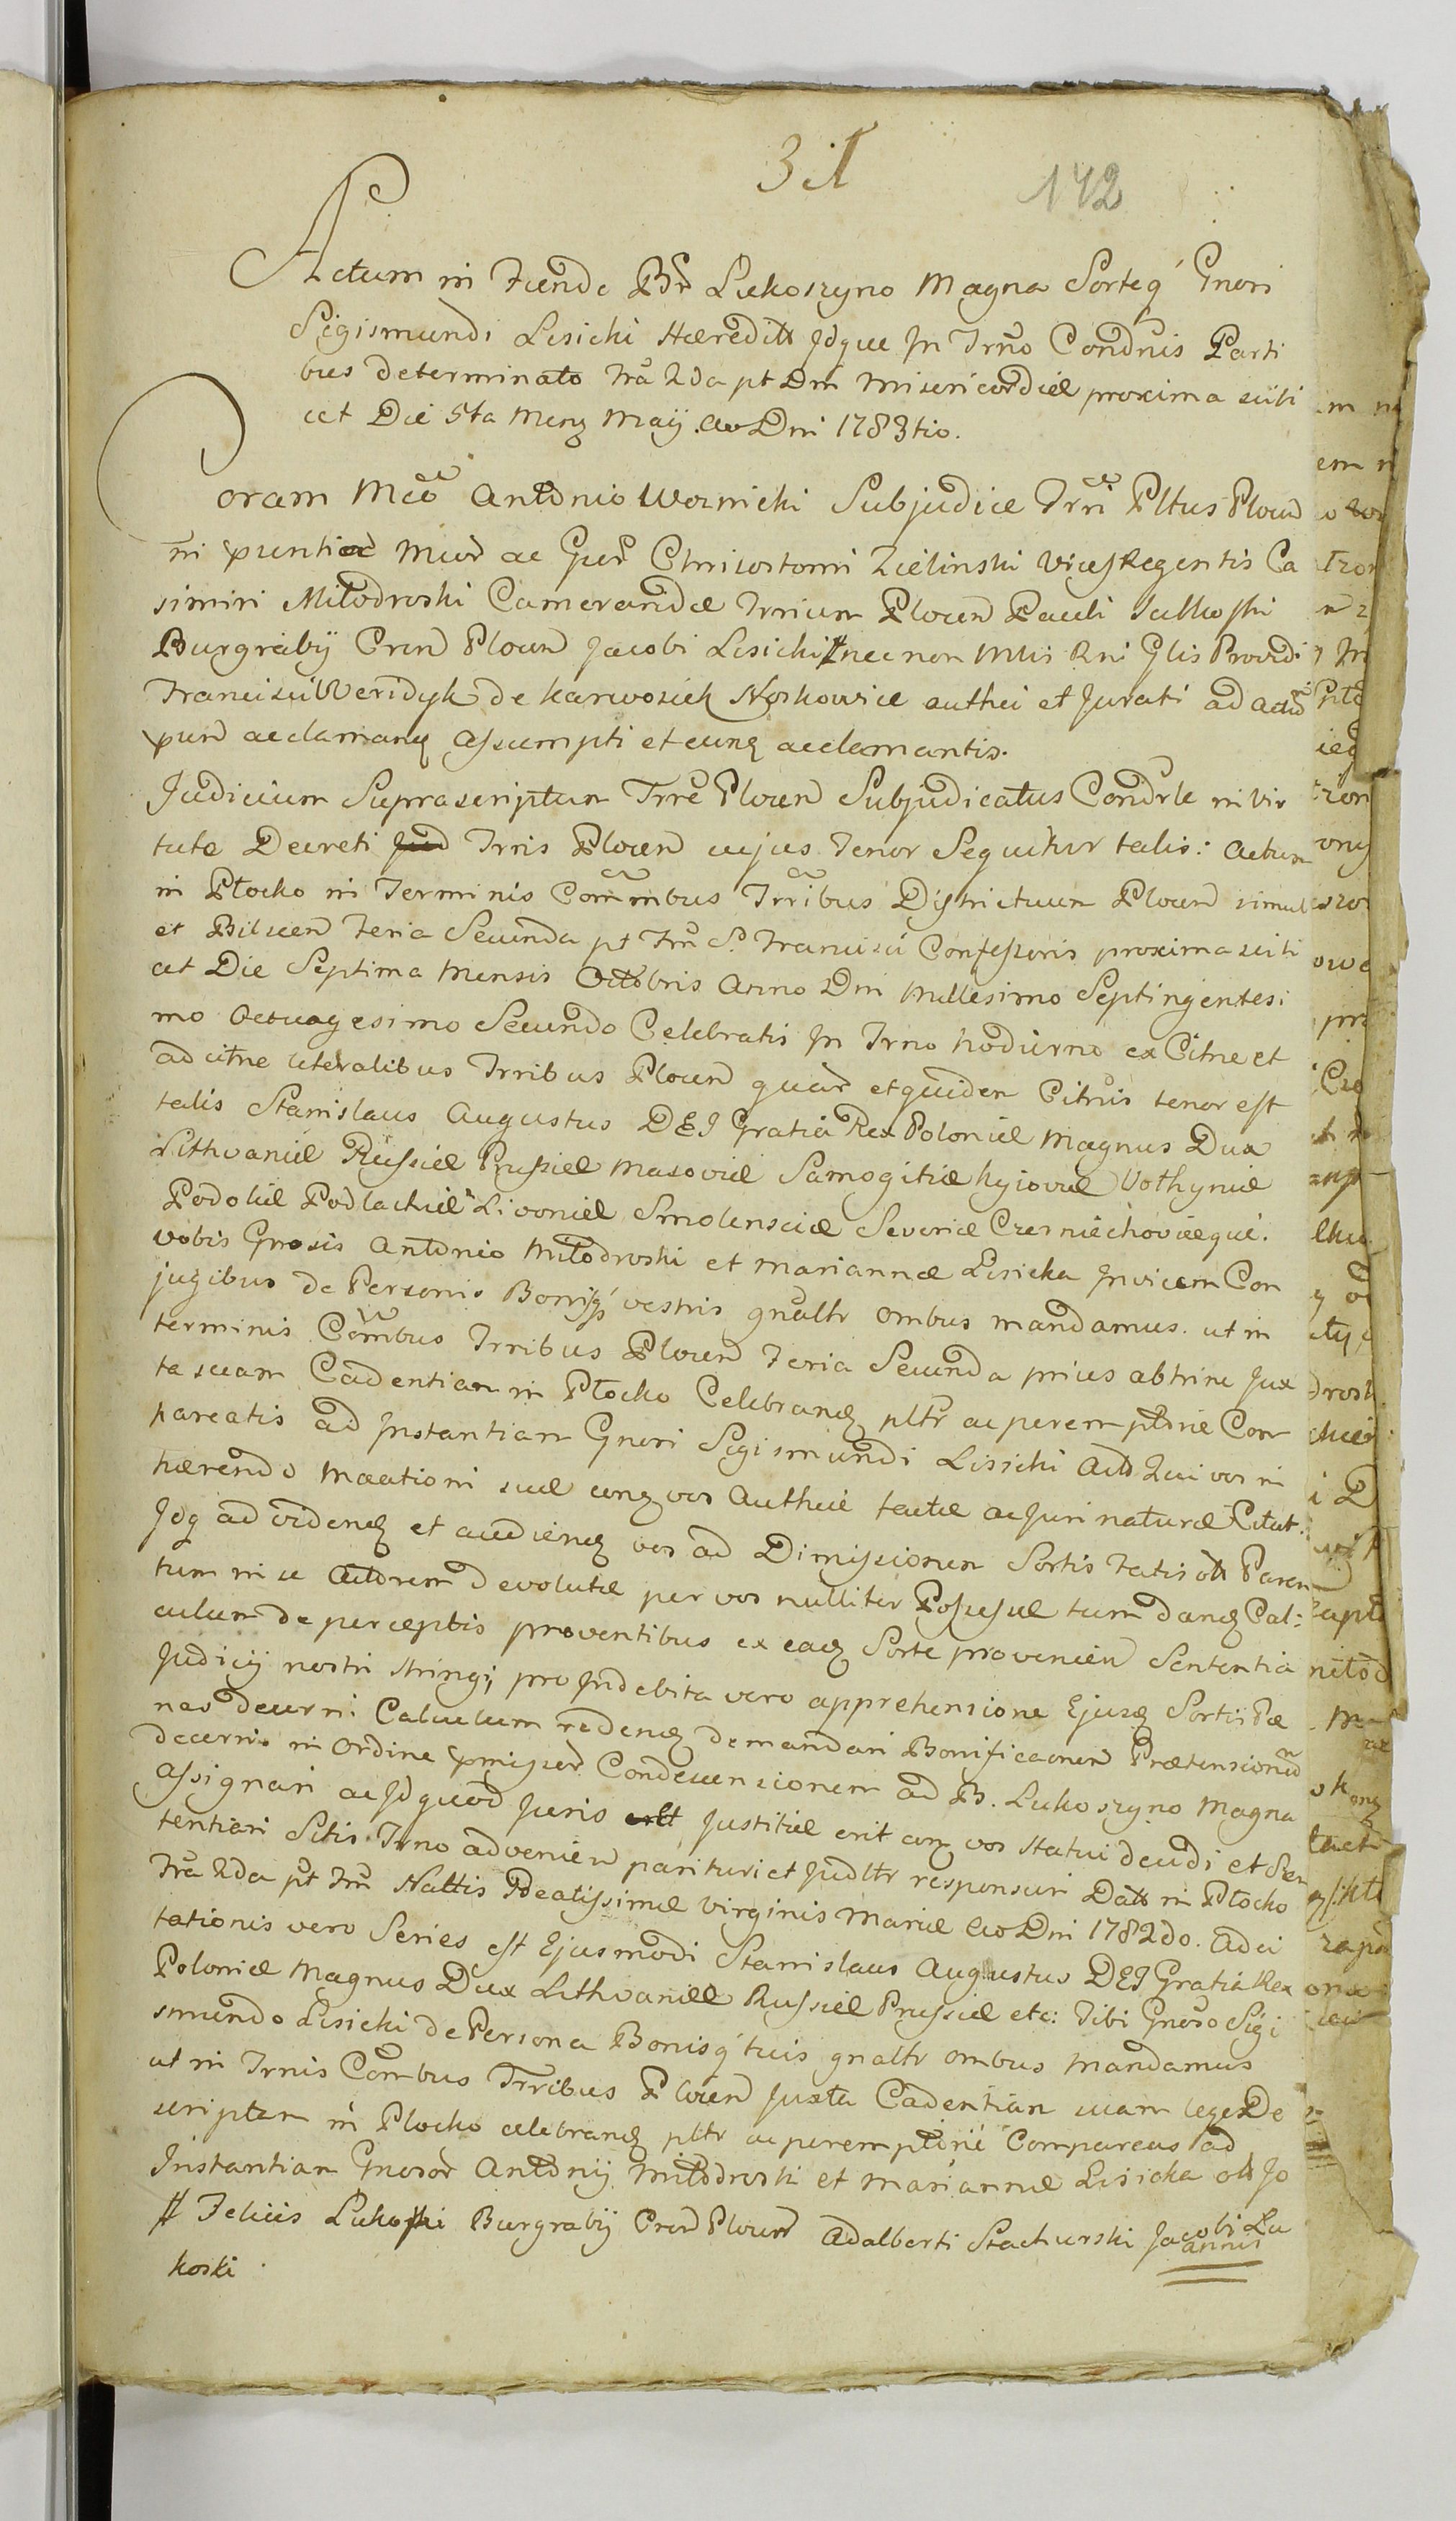 31
142
Actum in Fundo Br Lukoszyno Magna Sorteq Gnori
Sigismundi Lisicki Haereditt Idque In Trno Condnis Parti
bus determinato Fra 2da pt Dm Misericordiae proxima scili
cet Die 5ta Menz Maij Ao Dni 1783tio.
Coram Mco Antonio Woznicki Subjudice Trri Pltus Plocen
in puntia Mcor ac Gner Chrisostomi Zielinski ViceRegentis Ca
simiri Miłodroski Camerandae Trrium Plocen Pauli Sulkoski
Burgrabij Cren Plocen Jacobi Lisicki # nec non Mtis Rni Glis Providi
Francisci Weridyk de Karwosiek Noskowice authci et Jurati ad actu
pund acclamanq assumpti et eunq acclamantis.
Judicium Suprascriptum Trre Plocen Subjudicatus Condrle in vir
tute Decreti Jud Trris Plocen cujus Tenor Sequitur talis: Actum
in Płocko in Terminis Commbus Trribus Districtuum Plocen simul
et Bilscen Feria Secunda pt Fm S. Francisci Confessoris proxima scili
cet Die Septima Mensis Octobris Anno Dni Millesimo Septingentesi
mo Octuagesimo Secundo Celebratis In Trno hodierno ex Citne et
adcitne literalibus Trribus Plocen quar et quidem Citnis tenor est
talis Stanislaus Augustus DEI Gratia Rex Poloniae Magnus Dux
Lithvaniae Russiae Prussiae Masoviae Samogitiae Kyioviae Volhyniae
Podoliae Podlachiae Livoniae Smolensciae Severiae Czerniechoviaeque.
vobis Gnosis Antonio Miłodroski et Mariannae Lisicka Invicem Con
jugibus de Personis Bonisq vestris gnaltr ombus mandamus. ut in
terminis Commbus Trribus Plocen Feria Secunda prius abhinc Jux
ta suam Cadentiam in Płocko Celebranq pltr ac peremptorie Com
pareatis ad Instantiam Gnori Sigismundi Lisicki Actt Qui vos in
haerendo Maationi suae cunq vos Authcie factae ac Juri naturae Citat.
Idq ad videnq et audienq vos ad Dimissionem Sortis Fatis ott Paren
tum in se Actorem devolutae per vos nulliter Possessae tum danq Cal:
culum de perceptis proventibus ex eaq Sorte provenien Sententia
Judicij nostri stringi, pro Indebita vero apprehensione Ejusq Sortis Pae
nas decerni Calculum redenq demandari Bonificaonen Praetensionen
decerni in Ordine praemissor Condescensionem ad B. Lukoszyno Magna
assignari ac Id quod Juris ertt Justitiae erit cum vos statui decidi et Sen
tentiari Sitis Trno advenien parituri et Judltr responsuri Datt in Płocko
Fra 2da pt Fm Nattis Beatissimae Virginis Mariae Ao Dni 1782do. Adci
tationis vero Series est Ejusmodi Stanislaus Augustus DEI Gratia Rex
Poloniae Magnus Dux Lithvaniae Russiae Prussiae etc: Tibi Gnoso Sigi
smundo Lisicki de Persona Bonisq tuis gnaltr ombus mandamus
ut in Trnis Commbus Trribus Plocen Juxta Cadentiam suam lege De
scriptam in Płocko celebranq pltr ac peremptorie Compareas ad
Instantiam Gnosor Antonij Miłodroski et Mariannae Lisicka ott Jo
annis
# Felicis Lukoski Burgrabij Cren Plocen Adalberti Stachurski Jacobi Lu
koski